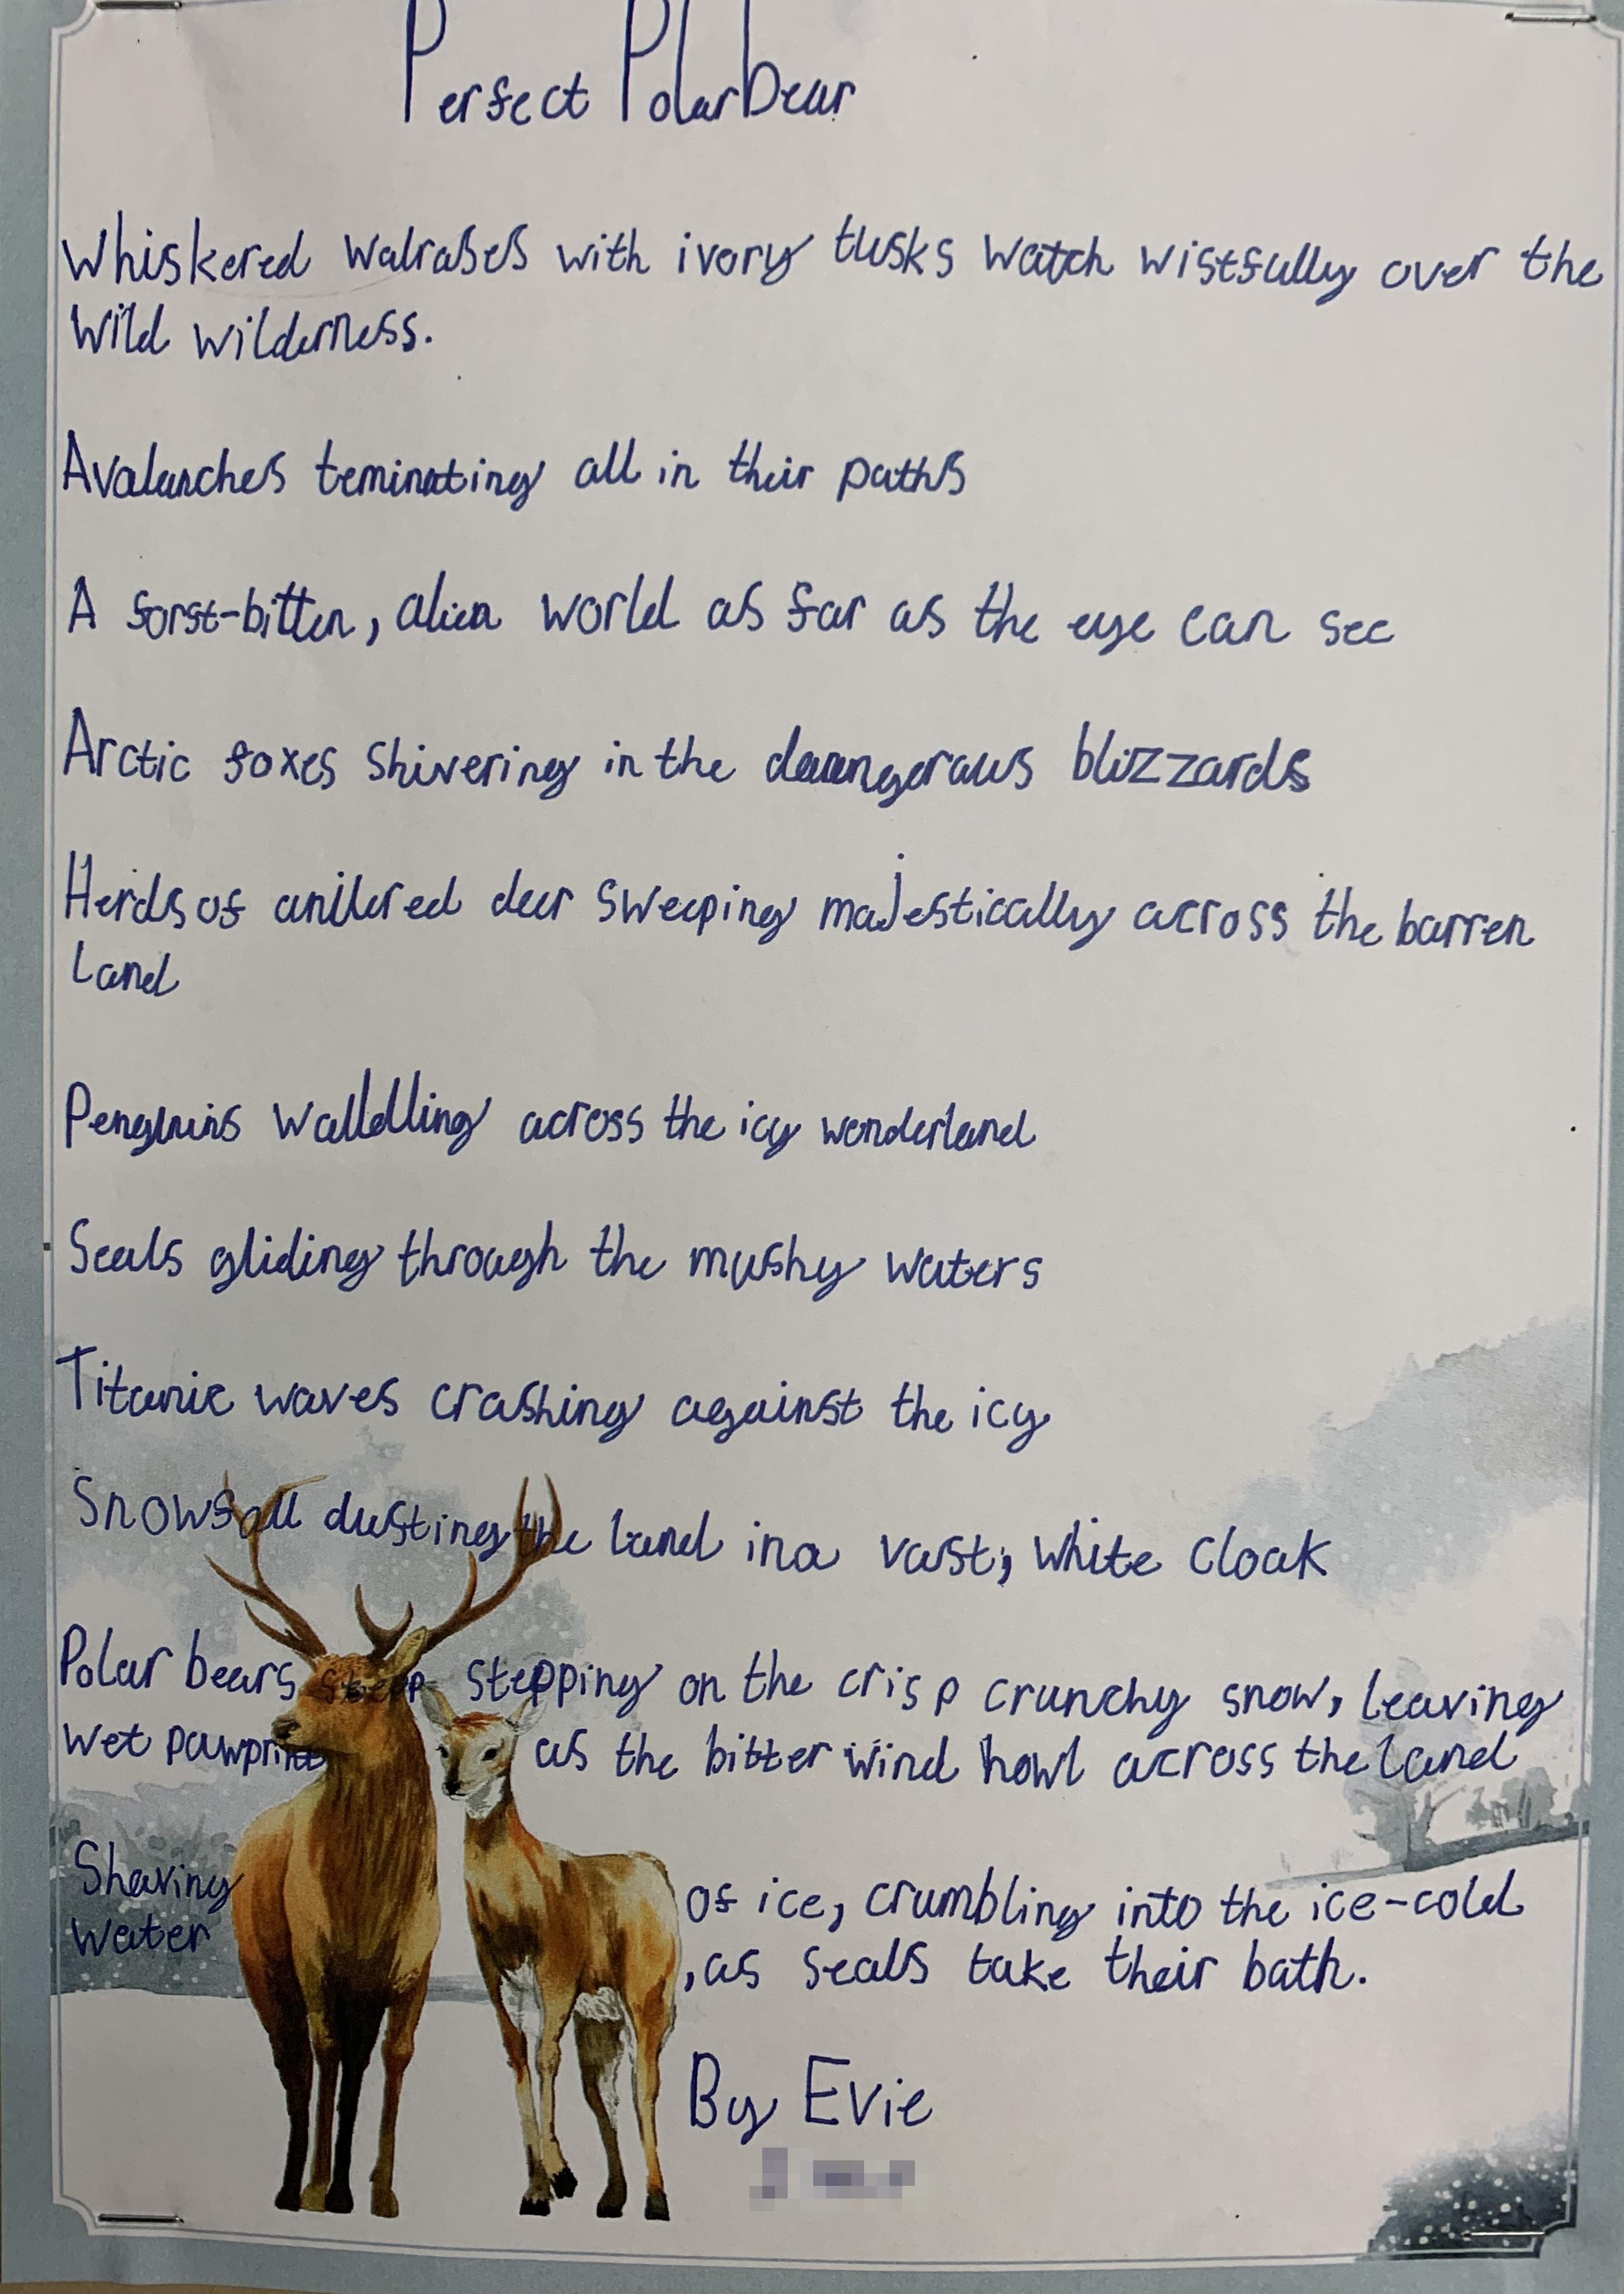 Perfect Polarbear
Whiskered walruses with ivory tusks watch wistfully over the
wild wilderness.
Avalanches teminating all in their paths
A forst-bitten, alien world as far as the eye can see
Arctic foxes shivering in the daangeraus blizzards
Herds of antlered deer sweeping majestically across the barren
land
Penguins waddling across the icy wonderland
Seals gliding through the mushy waters
Titanic waves crashing against the icy
Snowfall dusting the land in a vast, white cloak
Polar bears stepp stepping on the crisp crunchy snow, leaving
wet pawprint as the bitter wind howl across the land
Shaving of ice, crumbling into the ice-cold
water ,as seals take their bath.
By Evie